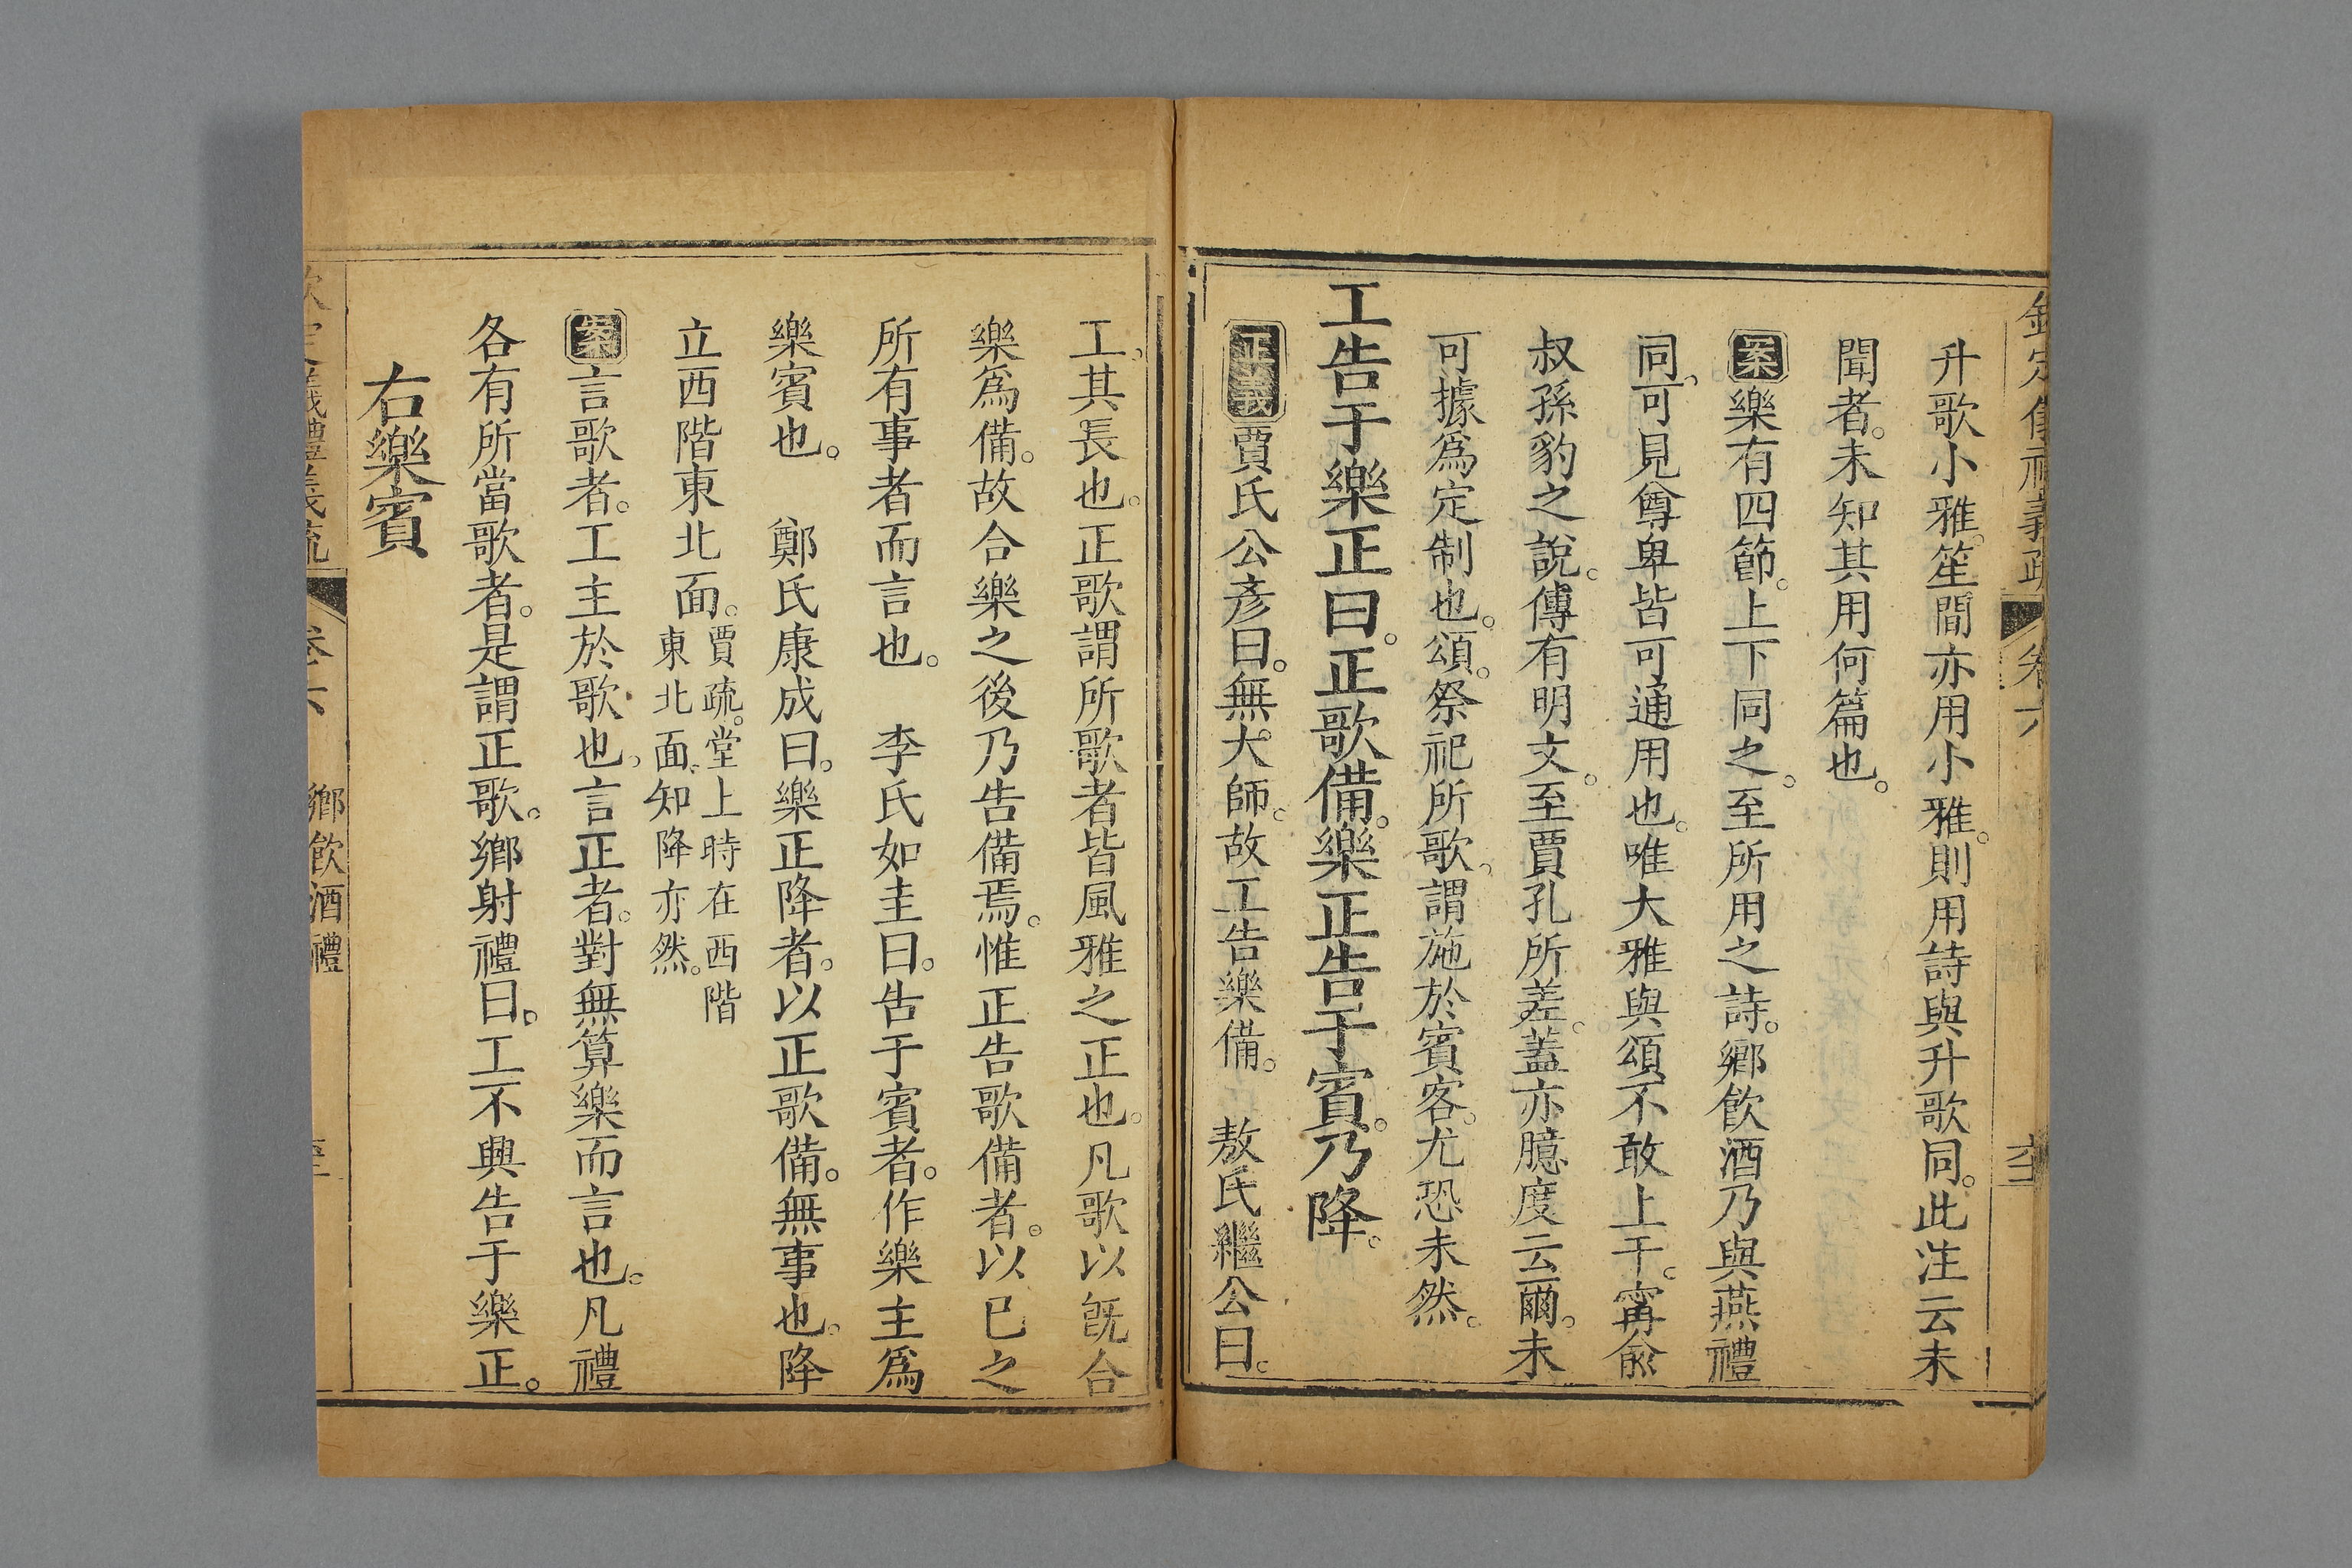 欽定儀禮義疏 卷六
升歌小雅。笙間亦用小雅。則用詩與升歌同。此注云未
聞者。未知其用何篇也。
案樂有四節。上下同之。至所用之詩。鄉飲酒乃與燕禮
同。可見尊卑皆可通用也。唯大雅與頌不敢上干。甯俞
叔孫豹之說。傳有明文。至賈孔所差。蓋亦臆度云爾。未
可據爲定制也。頌。祭祀所歌。謂施於賓客。尤恐未然。
工告于樂正曰。正歌備。樂正告于賓。乃降。
正義賈氏公彥曰。無大師。故工告樂備。 敖氏繼公曰。
工。其長也。正歌謂所歌者皆風雅之正也。凡歌以旣合
樂爲備。故合樂之後乃告備焉。惟正告歌備者。以已之
所有事者而言也。 李氏如圭曰。告于賓者。作樂主爲
樂賓也。 鄭氏康成曰。樂正降者。以正歌備。無事也。降
立西階東北面。賈疏。堂上時在西階
東北面。知降亦然。
案言歌者。工主於歌也。言正者。對無算樂而言也。凡禮
各有所當歌者。是謂正歌。鄉射禮曰。工不興告于樂正。
右樂賓
欽定儀禮義疏 卷六 鄉飲酒禮